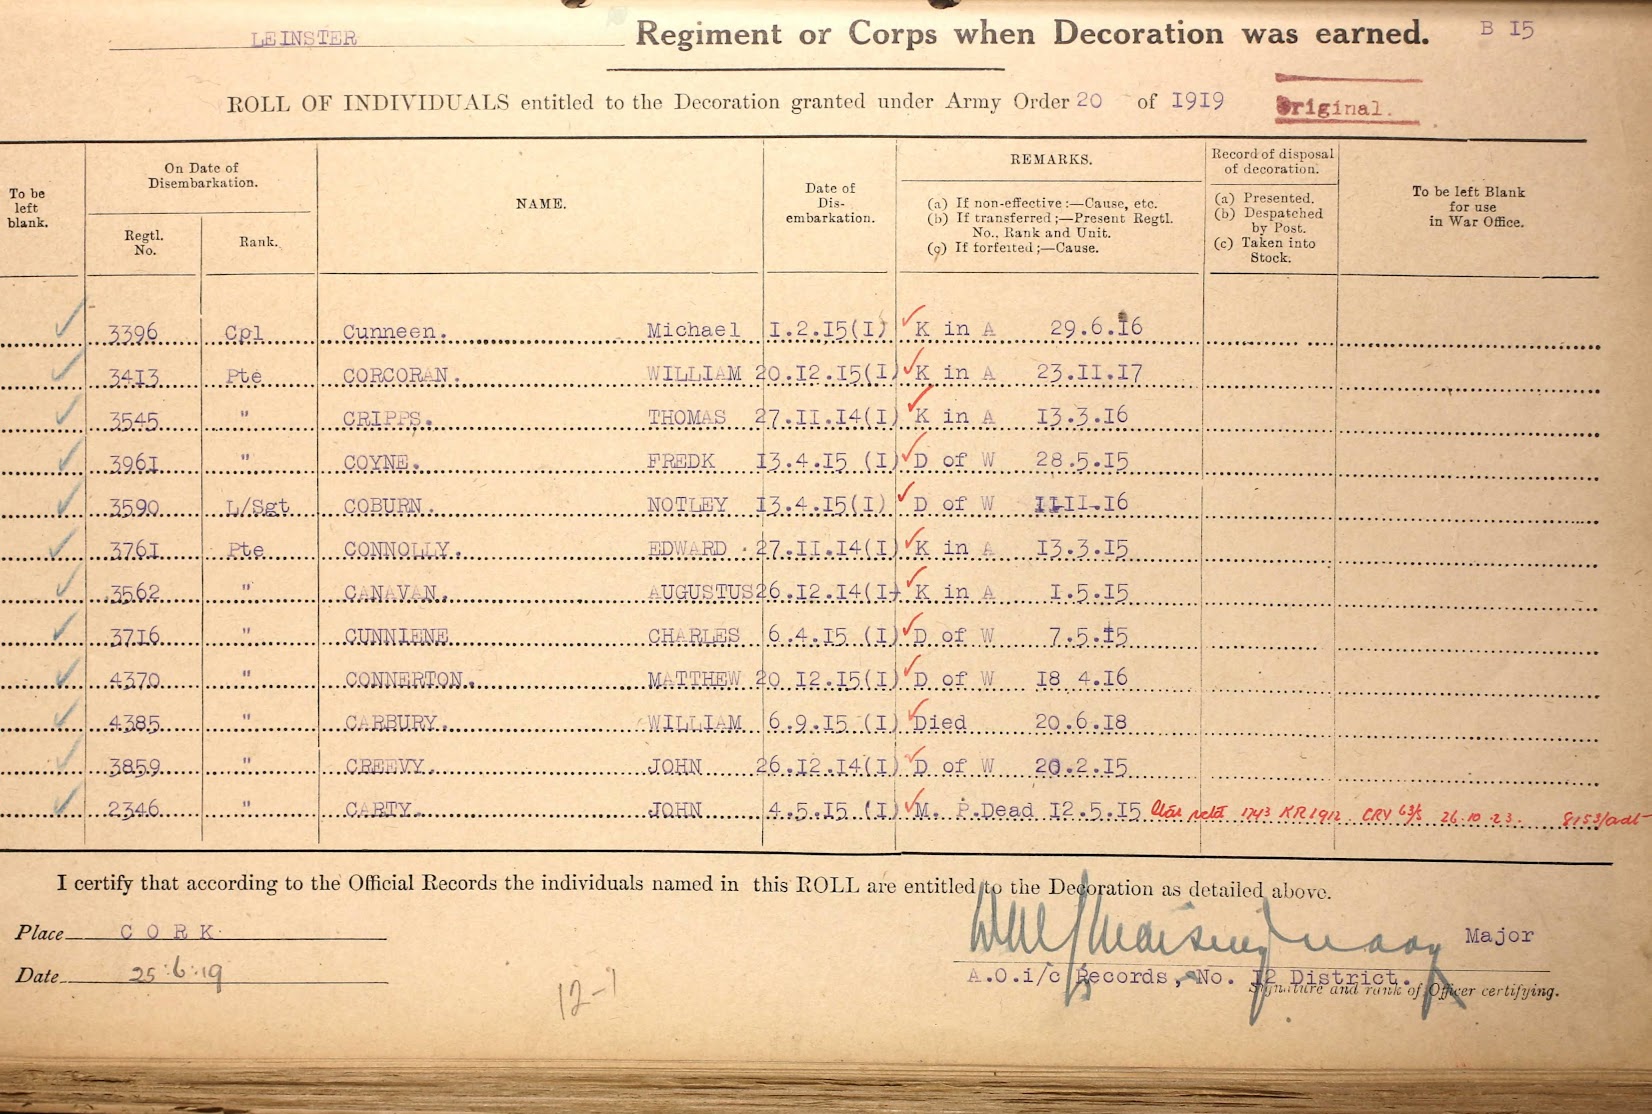 LEINSTER Regiment or Corps when Decoration was earned. B 15
ROLL OF INDIVIDUALS entitled to the Decoration granted under Army Order 20 of 1919 Original.
To be left blank.
On Date of Disembarkation.
Regtl. No.
Rank.
NAME.
Date of Dis-embarkation.
REMARKS.
(a) If non-effective:—Cause, etc.
(b) If transferred;—Present Regtl.
No., Rank and Unit.
(c) If forfeited;—Cause.
Record of disposal of decoration.
(a) Presented.
(b) Despatched
by Post.
(c) Taken into
Stock.
To be left Blank
for use
in War Office.
3396 Cpl Cunneen. Michael 1.2.15(1) K in A 29.6.16
3413 Pte CORCORAN. WILLIAM 20.12.15(1) K in A 23.11.17
3545 " CRIPPS. THOMAS 27.11.14(1) K in A 13.3.16
3961 " COYNE. FREDK 13.4.15 (1) D of W 28.5.15
3590 L/Sgt COBURN. NOTLEY 13.4.15(1) D of W 11-11-16
3761 Pte CONNOLLY. EDWARD 27.11.14(1) K in A 13.3.15
3562 " CANAVAN. AUGUSTUS 26.12.14(1) K in A 1.5.15
3716 " CUNNIENE CHARLES 6.4.15 (1) D of W 7.5.15
4370 " CONNERTON. MATTHEW 20 12.15(1) D of W 18 4.16
4385 " CARBURY. WILLIAM 6.9.15 (1) Died 20.6.18
3859 " CREEVY. JOHN 26.12.14(1) D of W 20.2.15
2346 " CARTY. JOHN 4.5.15 (1) M. P.Dead 12.5.15 Star retd 1743 KR 1912 CRV 26.10.23. 8153/adt
I certify that according to the Official Records the individuals named in this ROLL are entitled to the Decoration as detailed above.
Place CORK
Major
Date 25.6.19
A.O.i/c Records, No. 12 District.
Signature and rank of Officer certifying.
12-1